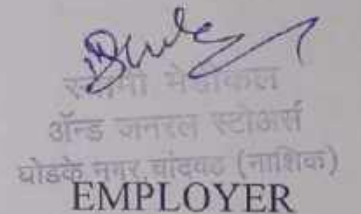 स्वामी मेडीकल
ॲन्ड जनरल स्टोअर्स
घोडके नगर, चांदवड (नाशिक)
EMPLOYER